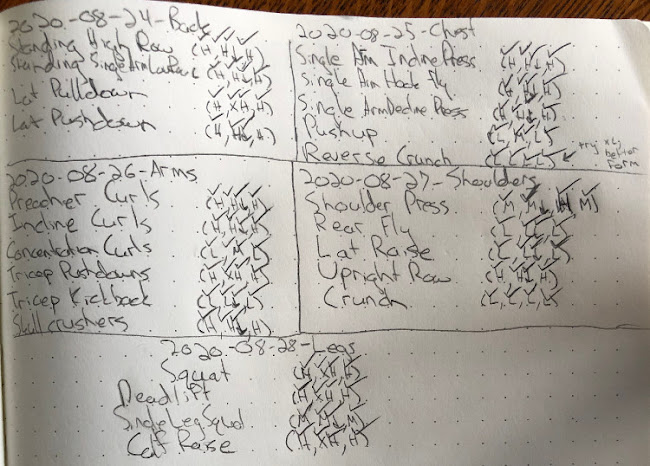 2020-08-24-Back
Standing High Row (H, H, H)
Standing Single Arm Low Row (H, H, H)
Lat Pulldown (H, XH, H)
Lat Pushdown (H, H, H)
2020-08-25-Chest
Single Arm Incline Press (H, H, L, H)
Single Arm Hook Fly
Single Arm Decline Press
Pushup (L, L, L, L)
Reverse Crunch (L, L, L, L) ← try XL, better form
2020-08-26-Arms
Preacher Curls
Incline Curls
Concentration Curls (L, M, L)
Tricep Pushdowns (H, XH, H)
Tricep Kickback (L, L, L)
Skullcrushers
2020-08-27-Shoulders
Shoulder Press (M, M, H, M)
Rear Fly (L, L, L)
Lat Raise
Upright Row
Crunch (L, L, L, L)
2020-08-28-Legs
Squat (H, XH, H)
Deadlift (H, XH, H)
Single Leg Squat
Calf Raise (H, XH, H)